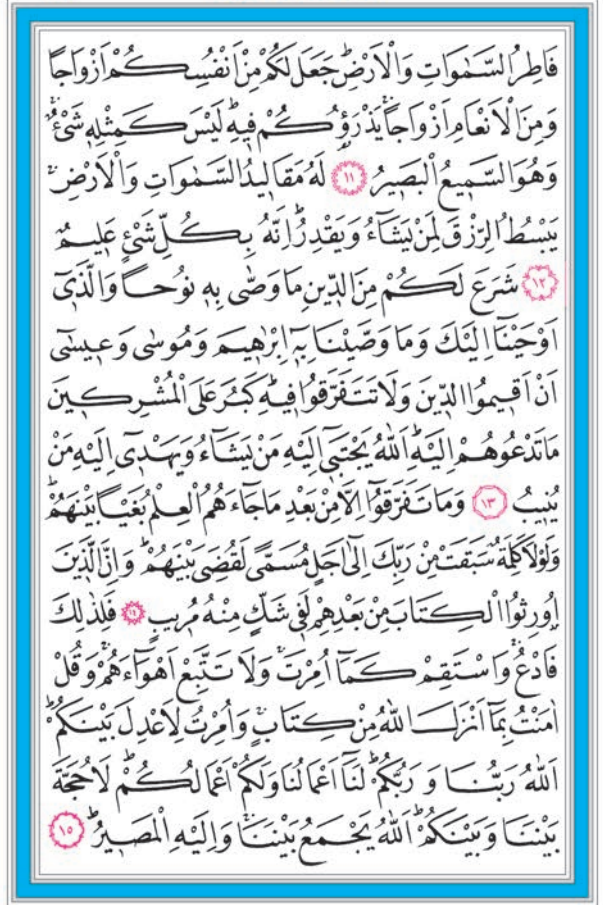 فَاطِرُ السَّمٰوَاتِ وَالْاَرْضِۜ جَعَلَ لَكُمْ مِنْ اَنْفُسِكُمْ اَزْوَاجًا
وَمِنَ الْاَنْعَامِ اَزْوَاجًاۚ يَذْرَؤُكُمْ فٖيهِۜ لَيْسَ كَمِثْلِهٖ شَيْءٌۚ
وَهُوَ السَّمٖيعُ الْبَصٖيرُ ﴿١١﴾ لَهُ مَقَالٖيدُ السَّمٰوَاتِ وَالْاَرْضِۚ
يَبْسُطُ الرِّزْقَ لِمَنْ يَشَٓاءُ وَيَقْدِرُۜ اِنَّهُ بِكُلِّ شَيْءٍ عَلٖيمٌ
﴿١٢﴾ شَرَعَ لَكُمْ مِنَ الدّٖينِ مَا وَصّٰى بِهٖ نُوحًا وَالَّذٖٓي
اَوْحَيْنَٓا اِلَيْكَ وَمَا وَصَّيْنَا بِهٖٓ اِبْرٰهٖيمَ وَمُوسٰى وَعٖيسٰٓى
اَنْ اَقٖيمُوا الدّٖينَ وَلَا تَتَفَرَّقُوا فٖيهِۜ كَبُرَ عَلَى الْمُشْرِكٖينَ
مَا تَدْعُوهُمْ اِلَيْهِۜ اَللّٰهُ يَجْتَبٖٓي اِلَيْهِ مَنْ يَشَٓاءُ وَيَهْدٖٓي اِلَيْهِ مَنْ
يُنٖيبُ ﴿١٣﴾ وَمَا تَفَرَّقُٓوا اِلَّا مِنْ بَعْدِ مَا جَٓاءَهُمُ الْعِلْمُ بَغْيًا بَيْنَهُمْۜ
وَلَوْلَا كَلِمَةٌ سَبَقَتْ مِنْ رَبِّكَ اِلٰٓى اَجَلٍ مُسَمًّى لَقُضِيَ بَيْنَهُمْۜ وَاِنَّ الَّذٖينَ
اُو۫رِثُوا الْكِتَابَ مِنْ بَعْدِهِمْ لَفٖي شَكٍّ مِنْهُ مُرٖيبٍ ﴿١٤﴾ فَلِذٰلِكَ
فَادْعُۚ وَاسْتَقِمْ كَمَٓا اُمِرْتَۚ وَلَا تَتَّبِعْ اَهْوَٓاءَهُمْۚ وَقُلْ
اٰمَنْتُ بِمَٓا اَنْزَلَ اللّٰهُ مِنْ كِتَابٍۚ وَاُمِرْتُ لِاَعْدِلَ بَيْنَكُمْۜ
اَللّٰهُ رَبُّنَا وَرَبُّكُمْۜ لَنَٓا اَعْمَالُنَا وَلَكُمْ اَعْمَالُكُمْۜ لَا حُجَّةَ
بَيْنَنَا وَبَيْنَكُمْۜ اَللّٰهُ يَجْمَعُ بَيْنَنَاۚ وَاِلَيْهِ الْمَصٖيرُۜ ﴿١٥﴾